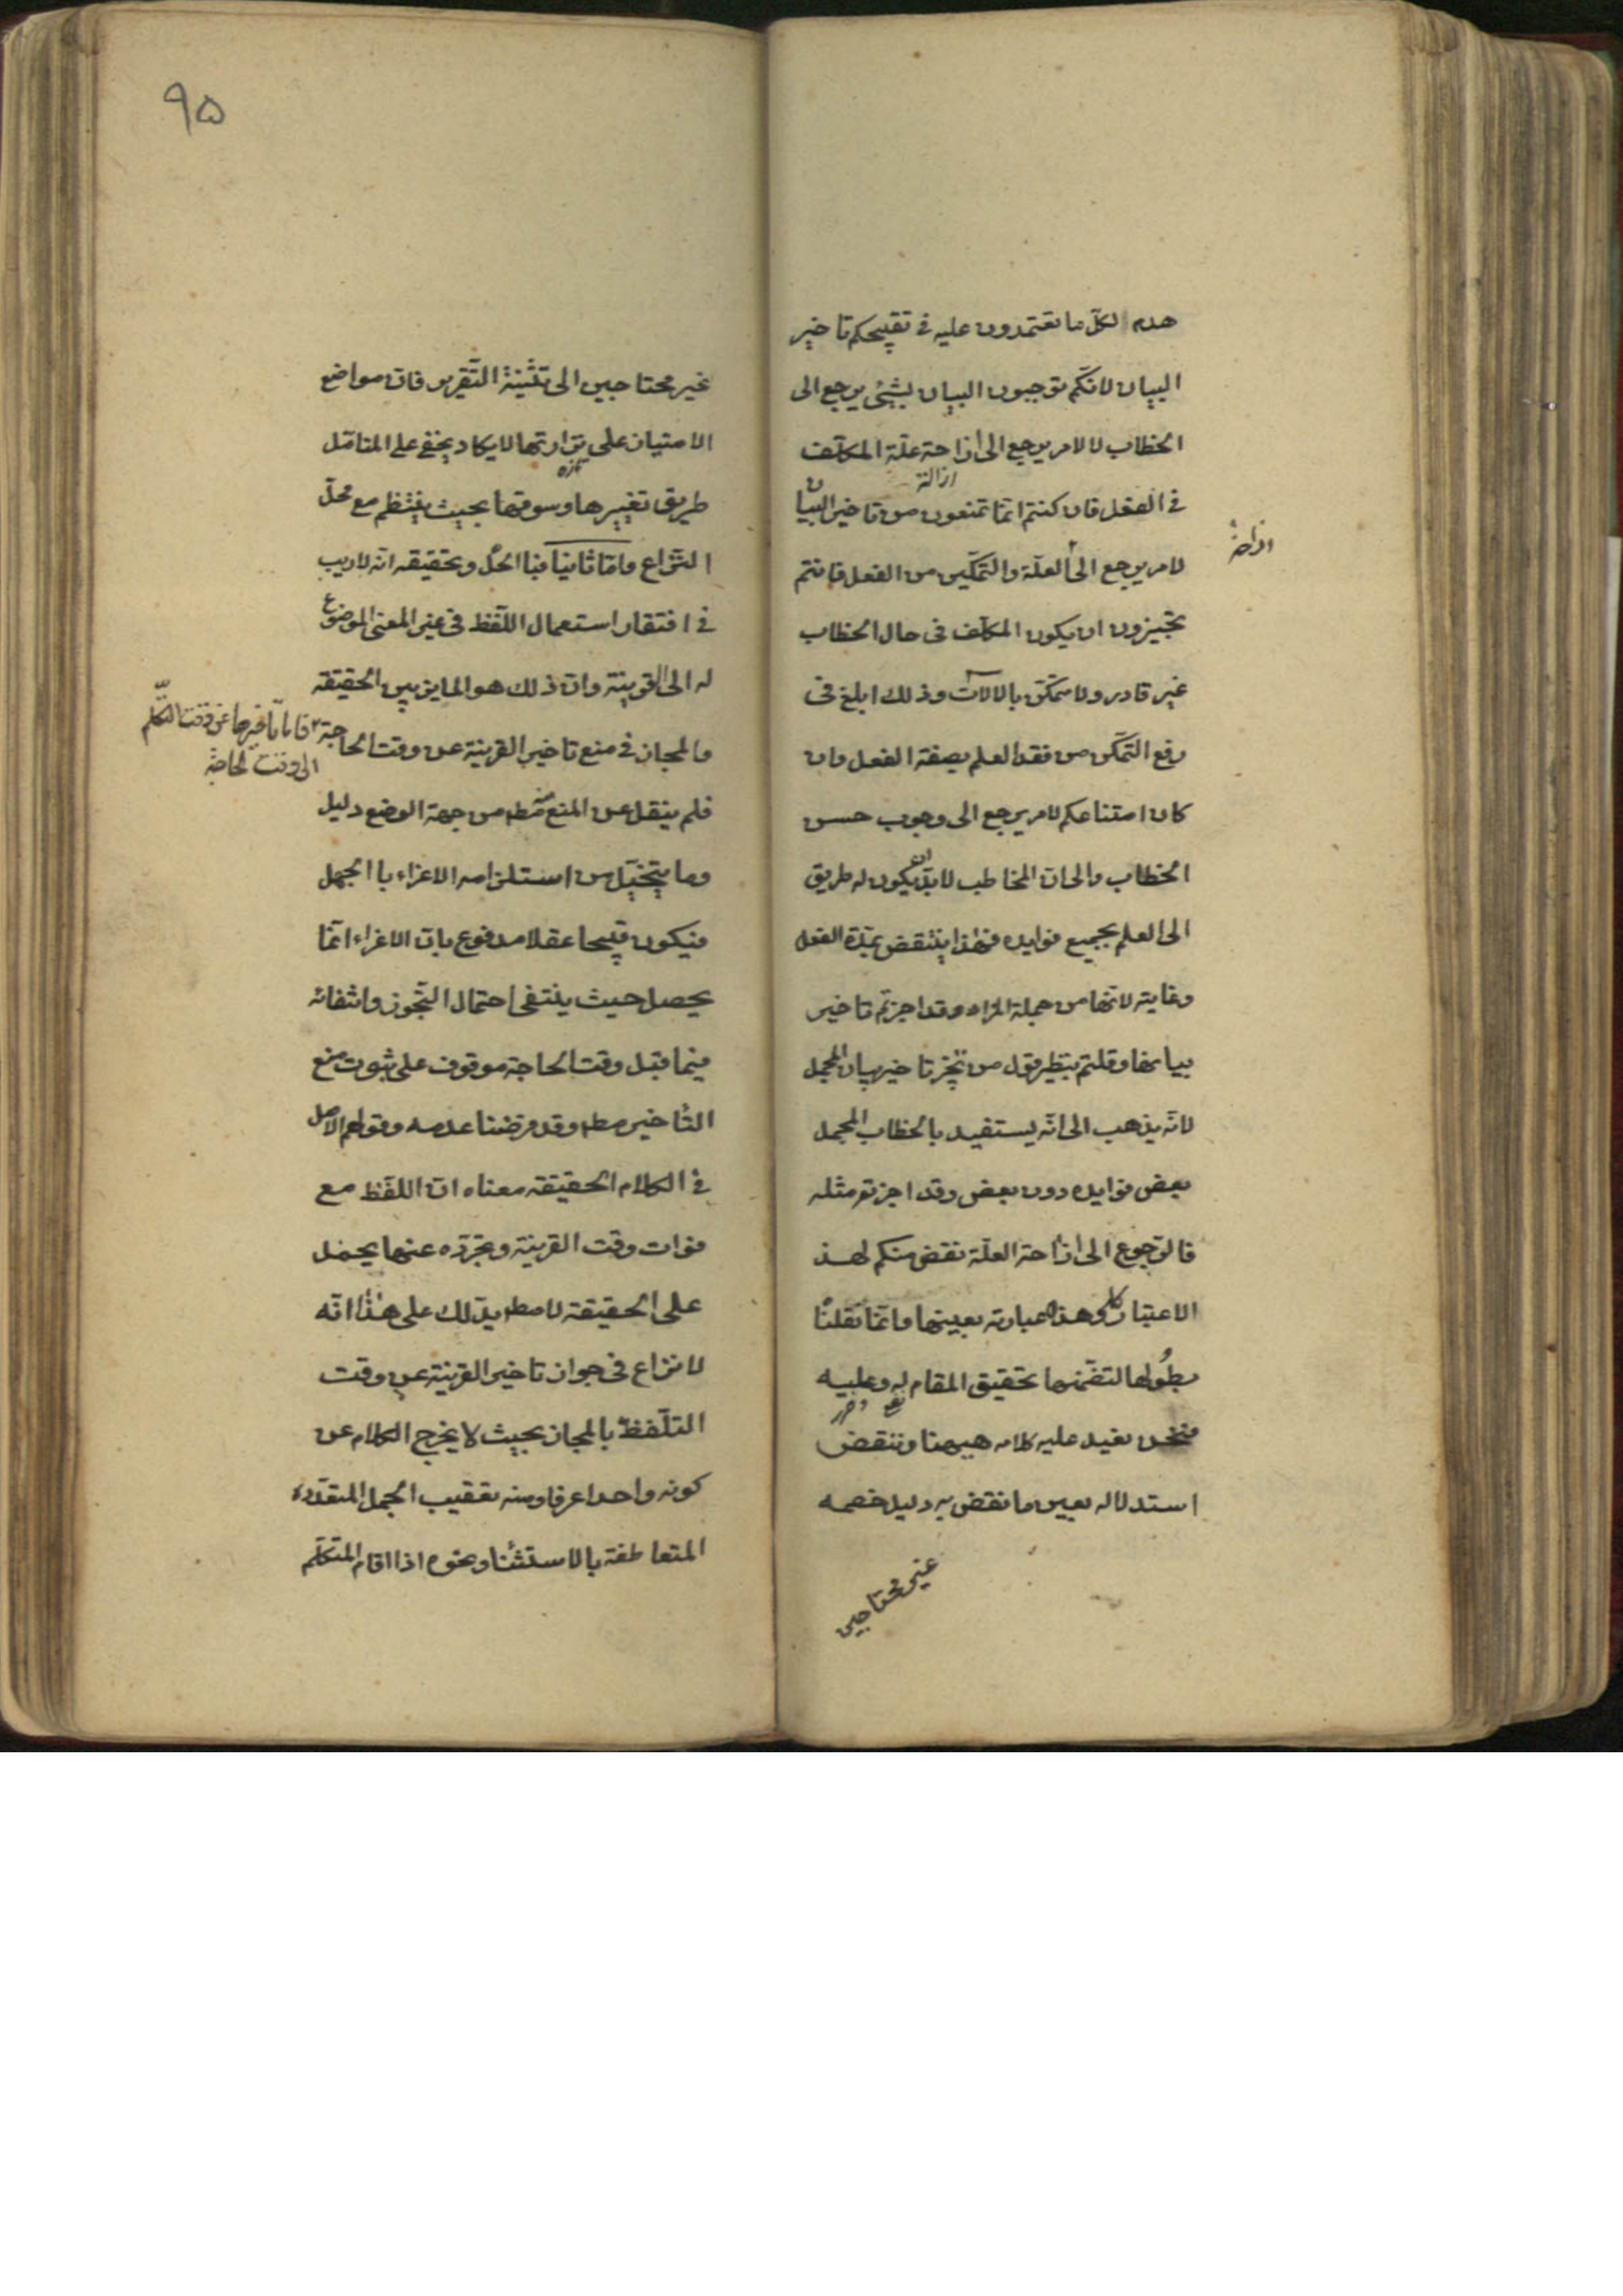 هدم لكلّ ما تعتمدون عليه في تقبيحكم تاخير
البيان لانّكم توجبون البيان لشيئ يرجع الى
الخطاب لا لامر يرجع الى ازاحة علّة المكلّف
ازالة
في الفعل فان كنتم انّما تمنعون من تاخير البيان
ازاحة
لامر يرجع الى العلّة والتمكّين من الفعل فانتم
تجيزون ان يكون المكلّف فى حال الخطاب
غير قادر ولا متمكّن بالالات وذلك ابلغ فى
رفع التمكّن من فقد العلم بصفة الفعل وان
كان امتناعكم لامر يرجع الى وجوب حسن
الخطاب والى ان المخاطب لا بدّ ان يكون له طريق
الى العلم بجميع فوايده فهذا ينتقض بمدّة الفعل
وغايته لانّها من جملة المراد وقد اجزتم تاخير
بيانها وقلتم بنظير قول من يجوّز تاخير بيان المجمل
لانّه يذهب الى انّه يستفيد بالخطاب المجمل
بعض فوايده دون بعض وقد اجزتم مثله
فالرّجوع الى ازاحة العلّة نقض منكم لهذا
الاعتبار كلّه وهذه عبارته بعينها وانّما نقلنا
بطولها لتضمّنها تحقيق المقام له وعليه
فنحن نعيد عليه كلامه هيهنا وننقض
استدلاله بعين ما نقض به دليل خصمه
غير محتاجين
٩٥
غير محتاجين الى تثنية التّقرير فانّ مواضع
الامتياز على نزارتها لا يكاد يخفى على المتامّل
طريق تغييرها وسوقها بحيث ينتظم مع محلّ
النّزاع وامّا ثانيا فبا الحلّ وتحقيقه انّه لا ريب
في افتقار استعمال اللّفظ فى غير المعنى الموضوع
له الى القرينة وانّ ذلك هو المايز بين الحقيقه
والمجاز في منع تاخير القرينة عن وقت الحاجة
فامّا تاخيرها عن وقت التكلّم
الى وقت الحاجة
فلم ينقل عن المنع مط من جهة الوضع دليل
وما يتخيّل من استلزامه الاغراء با الجهل
فيكون قبيحا عقلا مدفوع بان الاغراء انّما
يحصل حيث ينتفى احتمال التّجوز وانتفائه
فيما قبل وقت الحاجة موقوف على ثبوت منع
التأخير مط وقد فرضنا عدمه وقولهم الاصل
في الكلام الحقيقه معناه انّ اللّفظ مع
فوات وقت القرينة وتجرّده عنها يحمل
على الحقيقة لا مط يدّلك على هذا انّه
لا نزاع فى جواز تاخير القرينة عن وقت
التلّفظ بالمجاز بحيث لا يخرج الكلام عن
كونه واحدا عرفا ومنه تعقيب الجمل المتعدّده
المتعاطفة بالاستثنا ونحوه اذا اقام المتكلّم